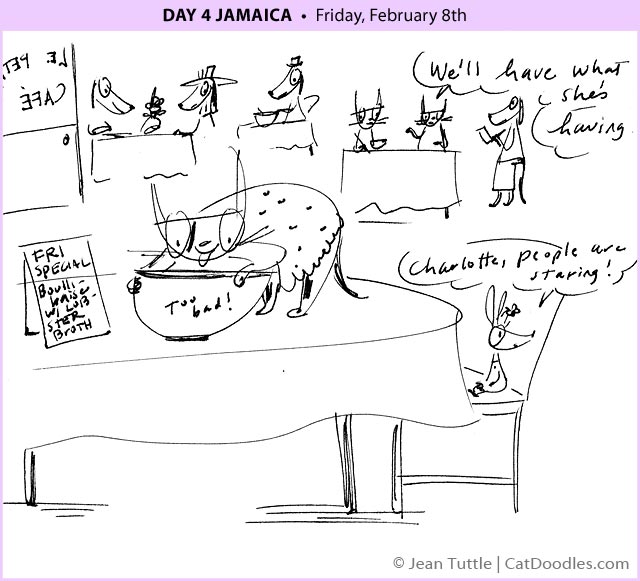 DAY 4 JAMAICA • Friday, February 8th
LE PET
CAFÉ
We'll have what
she's
having.
FRI
SPECIAL
Bouill-
W/ LOB-
STER
BROTH
Too
bad!
Charlotte, people are
staring!
© Jean Tuttle | CatDoodles.com